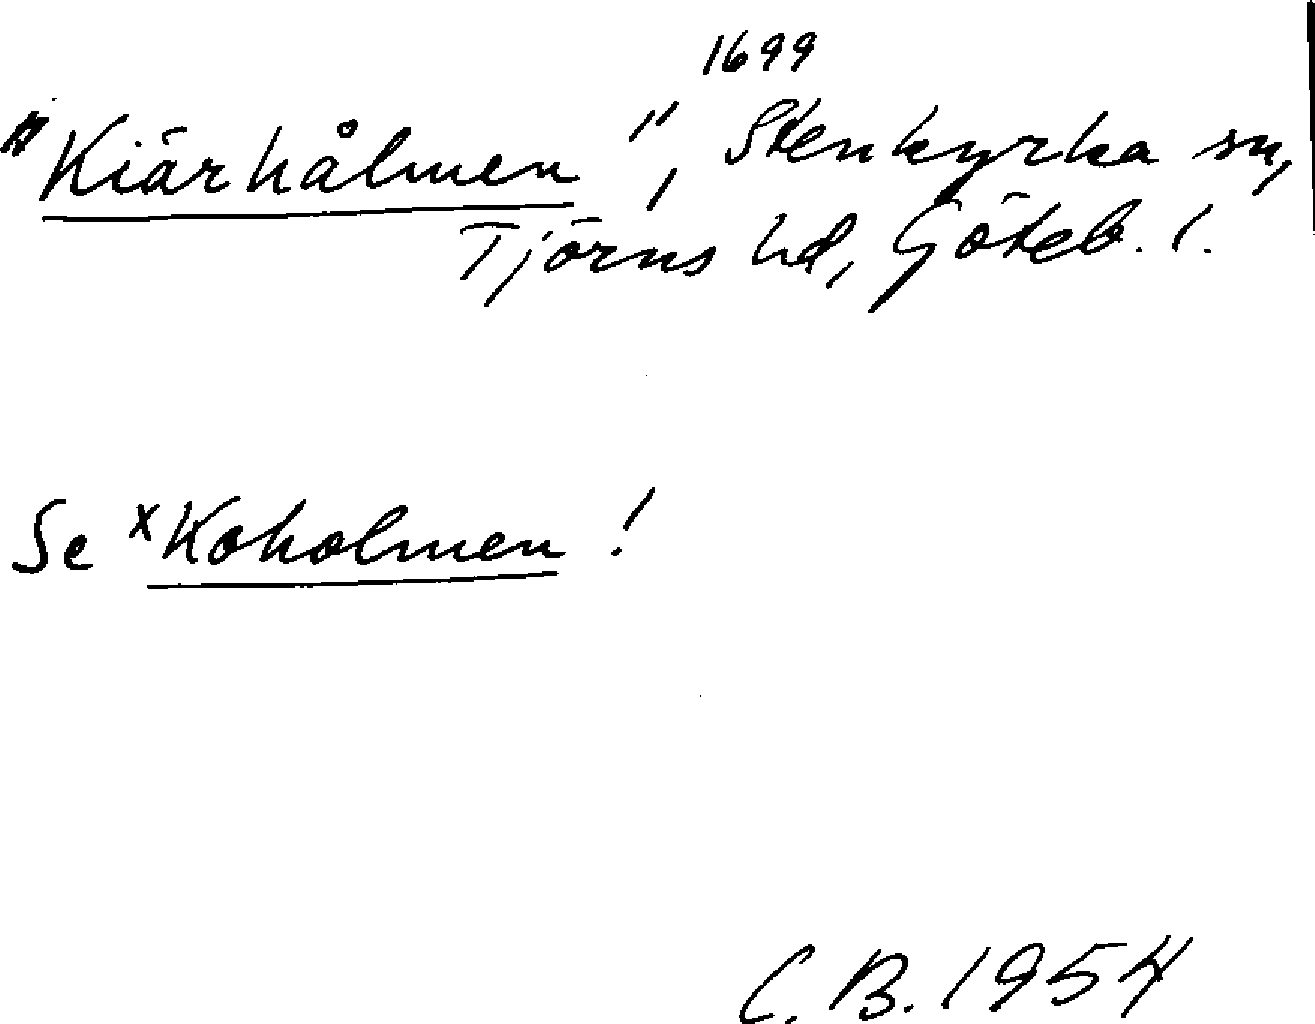 1699
"Kiärhålmen", Stenkyrka sn,
Tjörns hd, Göteb. l.
Se ˣKoholmen!
C. B. 1954